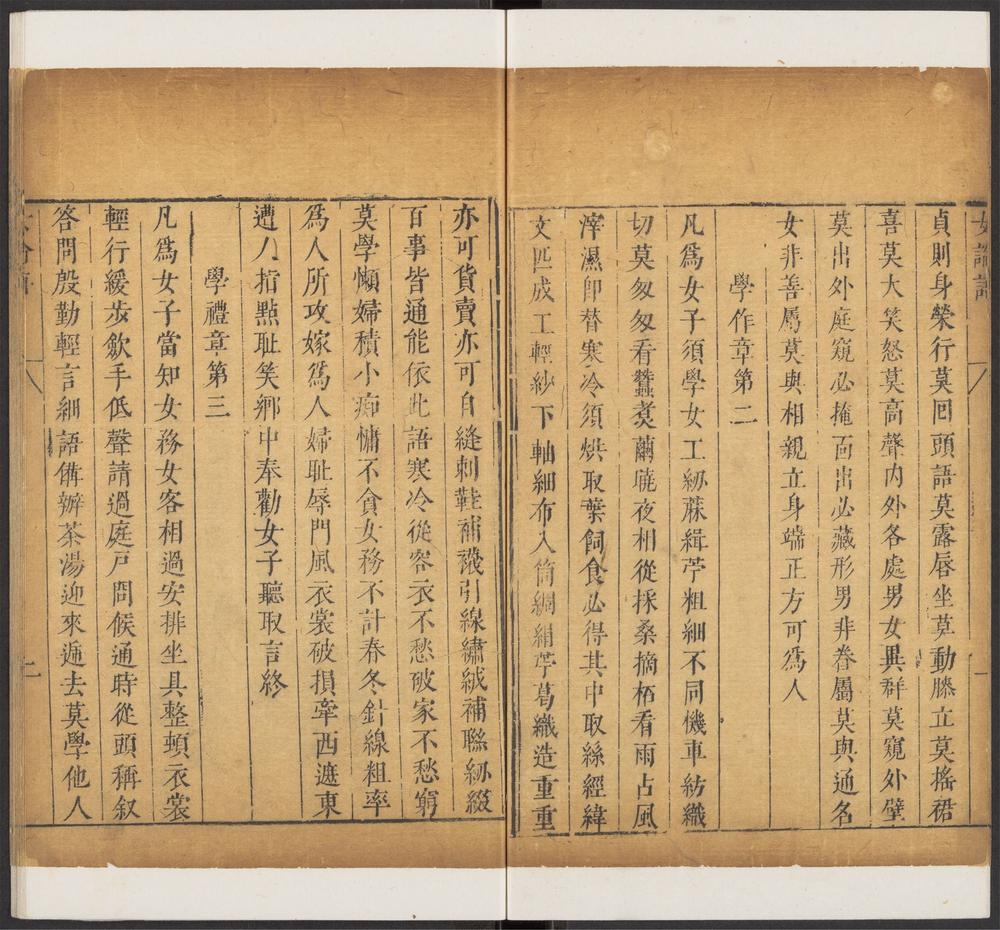 女論語
貞則身榮行莫回頭語莫露唇坐莫動膝立莫搖裙
喜莫大笑怒莫高聲内外各處男女異群莫窺外壁
莫出外庭窺必掩面出必藏形男非眷屬莫與通名
女非善屬莫與相親立身端正方可爲人
學作章第二
凡爲女子須學女工紉蔴緝苧粗細不同機車紡織
切莫匆匆看蠶煑繭曉夜相從採桑摘柘看雨占風
滓濕卽替寒冷須烘取葉飼食必得其中取絲經緯
丈匹成工輕紗下軸細布入筒綢絹苧葛織造重重
亦可貨賣亦可自縫刺鞋補襪引線繡絨補聯紉綴
百事皆通能依此語寒冷從容衣不愁破家不愁窮
莫學懶婦積小痴慵不貪女務不計春冬針線粗率
爲人所攻嫁爲人婦耻辱門風衣裳破損牽西遮東
遭人指點耻笑鄉中奉勸女子聽取言終
學禮章第三
凡爲女子當知女務女客相過安排坐具整頓衣裳
輕行緩步歛手低聲請過庭戸問候通時從頭稱叙
答問殷勤輕言細語備辦茶湯迎來遞去莫學他人